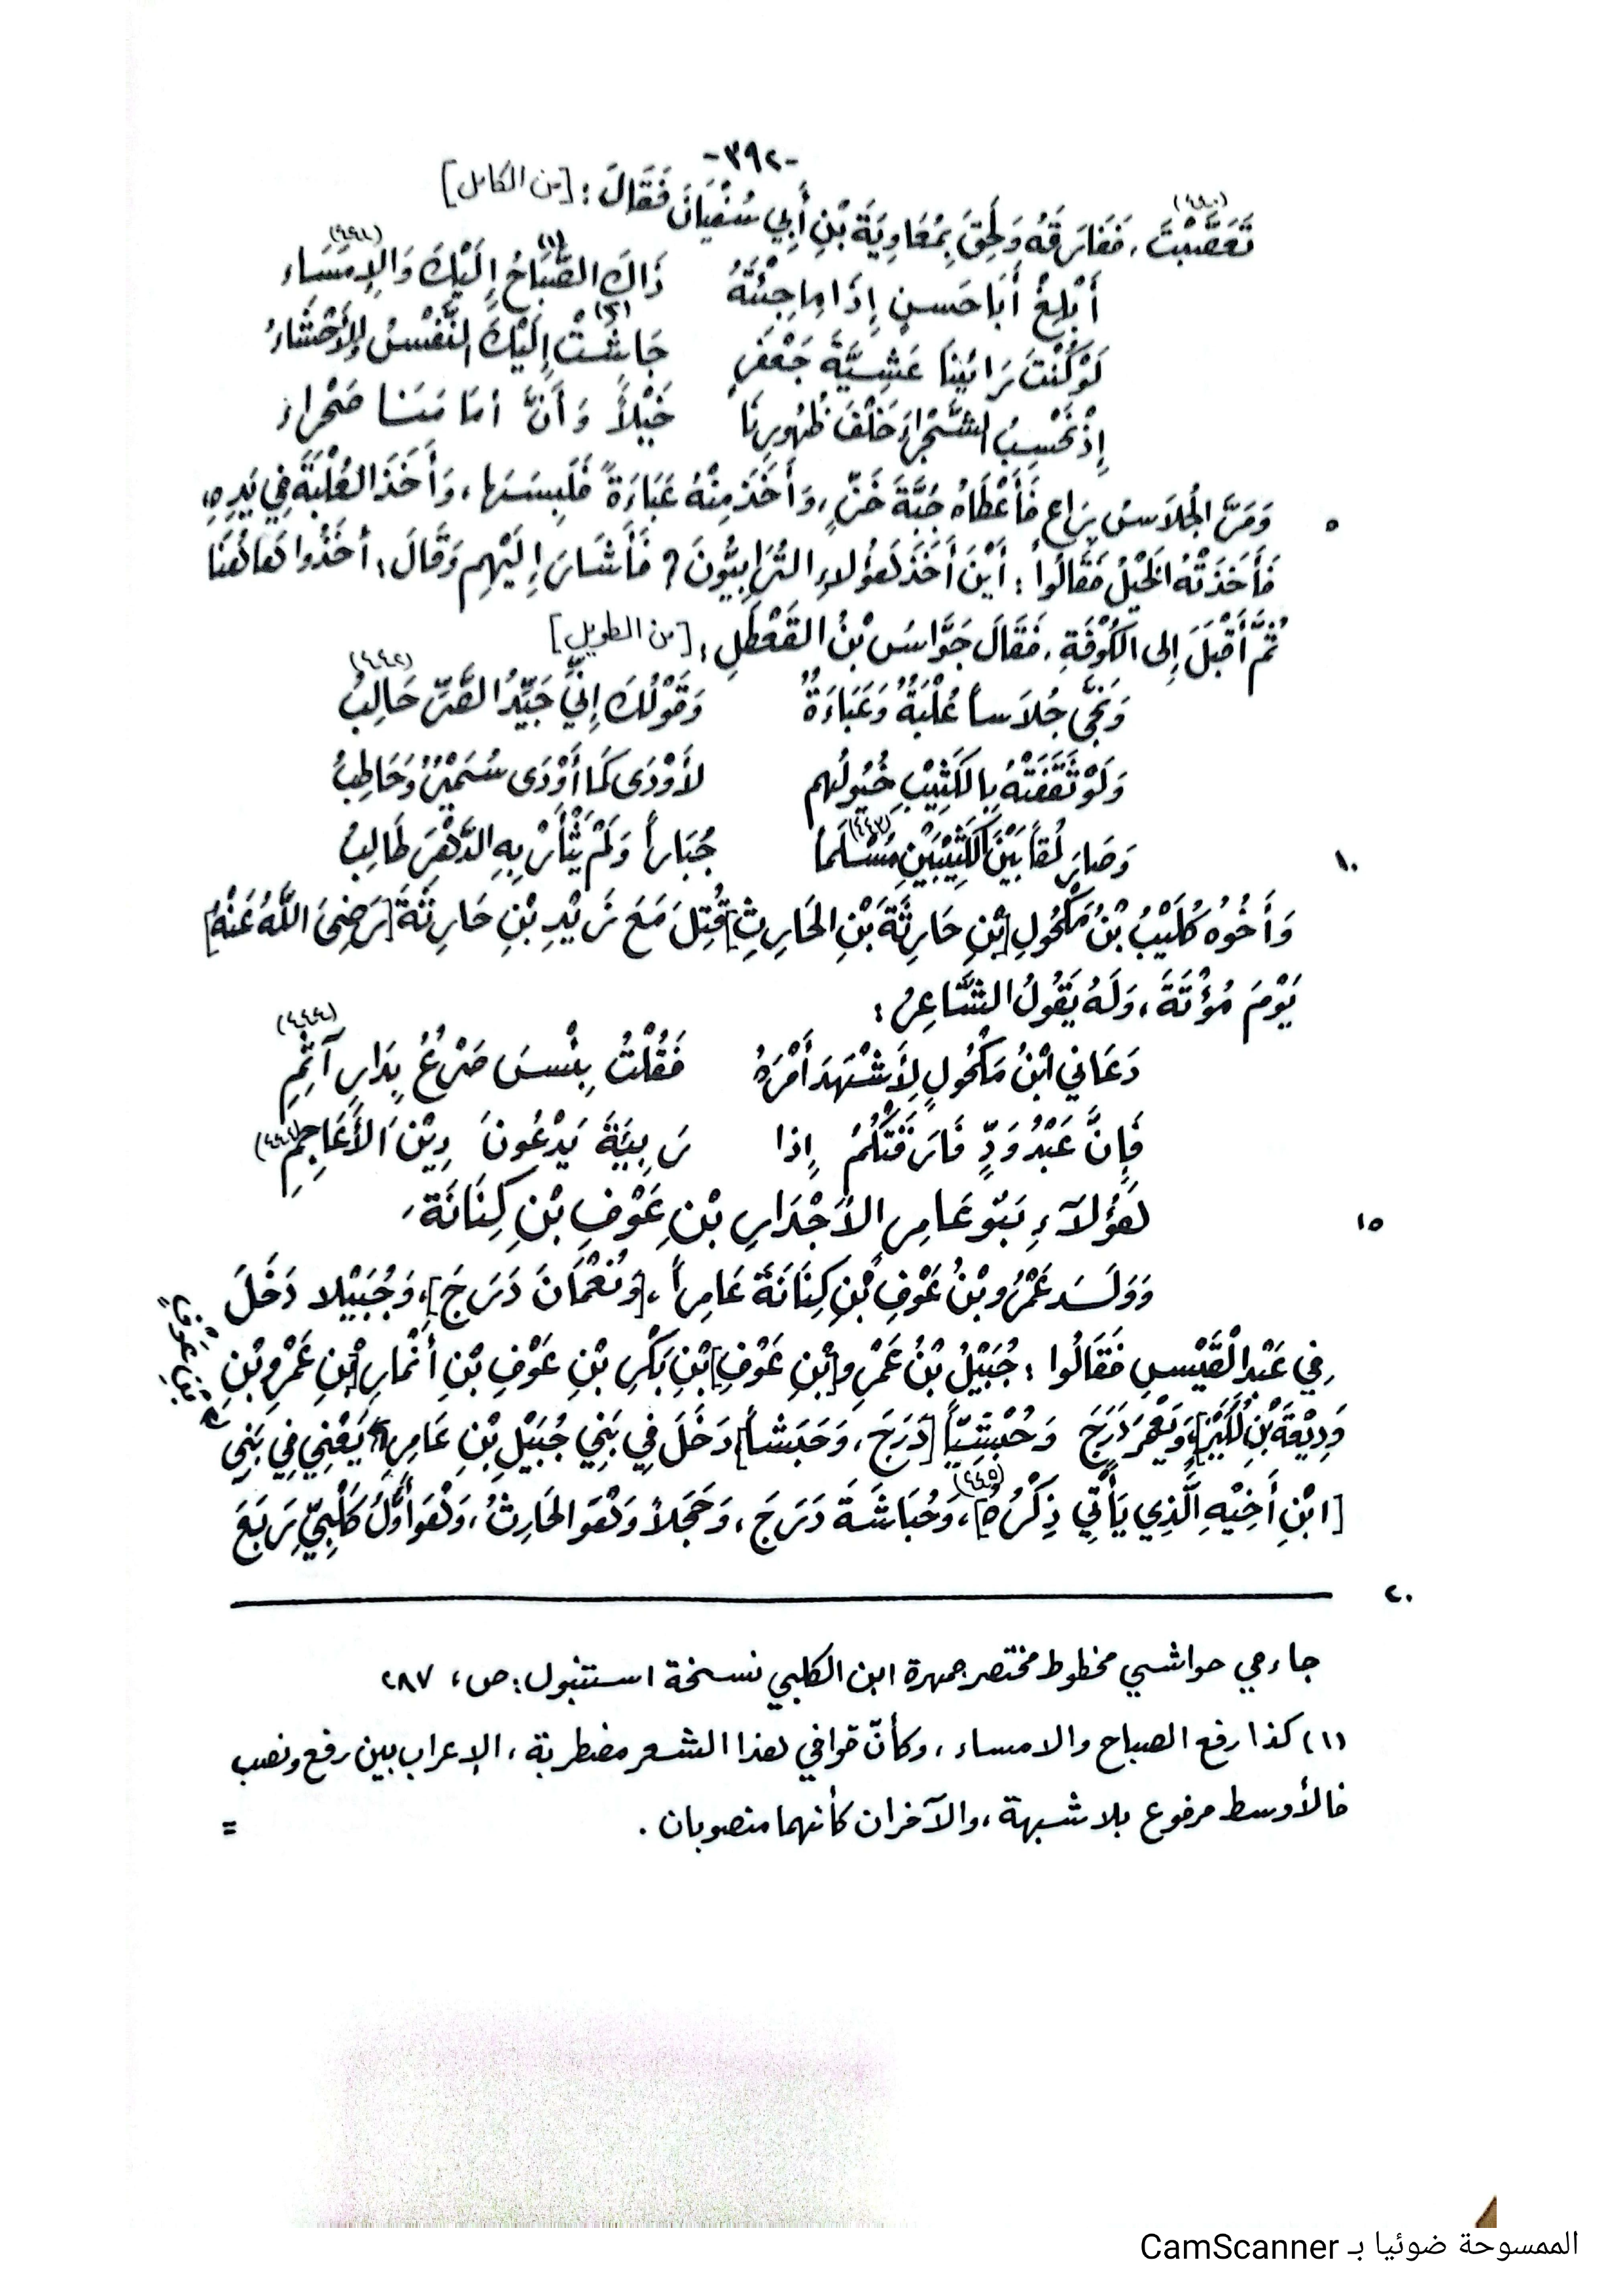 -٣٩٢-
تَعَصَّبْتَ، فَفَارَقَهُ وَلَحِقَ بِمُعَاوِيَةَ بْنِ أَبِي سُفْيَانَ فَقَالَ: [من الكامل]
أَبْلِغْ أَبَا حَسَنٍ إِذَا مَا جِئْتَهُ ذَاكَ الصَّبَاحُ (١) إِلَيْكَ وَالإِمْسَاء
لَوْ كُنْتَ رَائِيَنَا عَشِيَّةَ جَعْفَرٍ جَاشَتْ (٢) إِلَيْكَ النَّفْسُ والأَحْشَاءُ
إِذْ نَحْسِبُ الشَّجْرَاءَ خَلْفَ ظُهُورِنَا خَيْلاً وَأَنَّ أمَامَنا صَحْراءَ
وَمَرَّ الجُلاَسُ بِرَاعٍ فَأَعْطَاهُ جُبَّةَ خَزٍّ، وَأَخَذَ مِنْهُ عَبَاءَةً فَلَبِسَهَا، وَأَخَذَ العُلْبَةَ فِي يَدِهِ، ٥
فَأَخَذَتْهُ الخَيْلُ فَقَالُوا: أَيْنَ أَخَذَ هَؤُلاءِ التُّرَابِيُّونَ؟ فَأَشَارَ إِلَيْهِم وَقَالَ: أخَذُوا هَاهُنَا
ثُمَّ أَقْبَلَ إلى الكُوْفَةِ، فَقَالَ جَوَّاسُ بْنُ القَعْطَلِ: [من الطويل]
وَنَجَّى جُلاَساً عُلْبَةٌ وَعَبَاءَةٌ وَقَوْلُكَ إِنِّي جَيِّدُ الصَّرِّ حَالِبُ (٤٤٢)
وَلَوْ ثَقَفَتْهُ بِالكَثِيْبِ خُيُولُهم لأَوْدَى كَمَا أَوْدَى سُمَيْرٌ وَحَاطِبُ
وَصَارَ لُقاً بَيْنَ الكَثِيْبَيْنِ مُسْلَماً (٤٤٣) جُبَاراً وَلَمْ يَثْأَرْ بِهِ الدَّهْرَ طَالِبُ ١٠
وَأَخُوْهُ كُلَيْبُ بْنُ مَكْحُولِ [بْنِ حَارِثَةَ بْنِ الحَارِثِ] قُتِلَ مَعَ زَيْدِ بْنِ حَارِثَةَ [رَضِيَ اللَّهُ عَنْهُ]
يَوْمَ مُؤْتَةَ، وَلَهُ يَقُولُ الشَّاعِرُ:
دَعَاني ابْنُ مَكْحُولٍ لِأَشْهَدَ أَمْرَهُ فَقُلْتُ بِئْسَ ضَرْعُ بِدَارِ آثِمِ
فَإِنَّ عَبْدُ وَدٍّ فَارَقَتْكُمْ إذا رَبِيَئَةَ يَدْعُونَ دِيْنَ الأَعَاجِمِ
هَؤُلاَءِ بَنُو عَامِرِ الأَجْدَارِ بْنِ عَوْفِ بْنِ كِنَانَةَ. ١٥
وَوَلَـدَ عَمْرُو بْنُ عَوْفِ بْنِ كِنَانَةَ عَامِراً، [وَنُعْمَانَ دَرَجَ]، وَجُبَيْلا دَخَلَ
فِي عَبْدِ القَيْسِ فَقَالُوا: جُبَيْلُ بْنُ عَمْرِو [بْنِ عَوْفِ] بْنِ بَكْرِ بْنِ عَوْفِ بْنِ أَنْمَارِ [بْنِ عَمْرِو بْنِ
وَدِيْعَةَ بْنِ لُكَيْزٍ]، وَيَعْمَرَ دَرَجَ وَحُبْشِيّاً [دَرَجَ، وَحَبَشاً] دَخَلَ فِي بَنِي جُبَيْلِ بْنِ عَامِرٍ، يَعْنِي فِي بَنِي
بْنِ عَوْفٍ
[ابْنِ أَخِيْهِ الَّذِي يَأْتِي ذِكْرُهُ] (٤٤٥)، وَحُبَاشَةَ دَرَجَ، وَحَجَلاً وَهْوَ الحَارِثُ، وَهْوَ أَوَّلُ كَلْبِيٍّ رَبَعَ
٢٠
جاء في حواشي مخطوط مختصر جمهرة ابن الكلبي نسخة استنبول: ص، ٢٨٧
(١) كذا رفع الصباح والامساء، وكأنّ قوافي هذا الشعر مضطربة، الإعراب بين رفع ونصب
فالأوسط مرفوع بلا شبهة، والآخران كأنهما منصوبان. =
الممسوحة ضوئيا بـ CamScanner